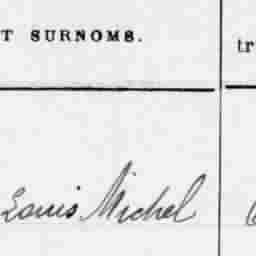 T SURNOMS.
tr
Louis Michel